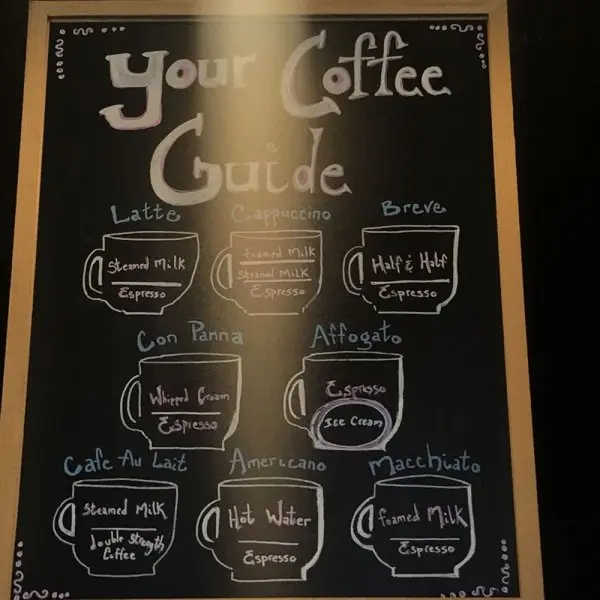 Your Coffee
Guide
Latte
Cappuccino
Breve
Steamed Milk
Espresso
foamed Milk
Steamed Milk
Espresso
Half & Half
Espresso
Con Panna
Affogato
Whipped Cream
Espresso
Espresso
Ice Cream
Cafe Au Lait
Americano
Macchiato
Steamed Milk
double Strength
Coffee
Hot Water
Espresso
foamed Milk
Espresso